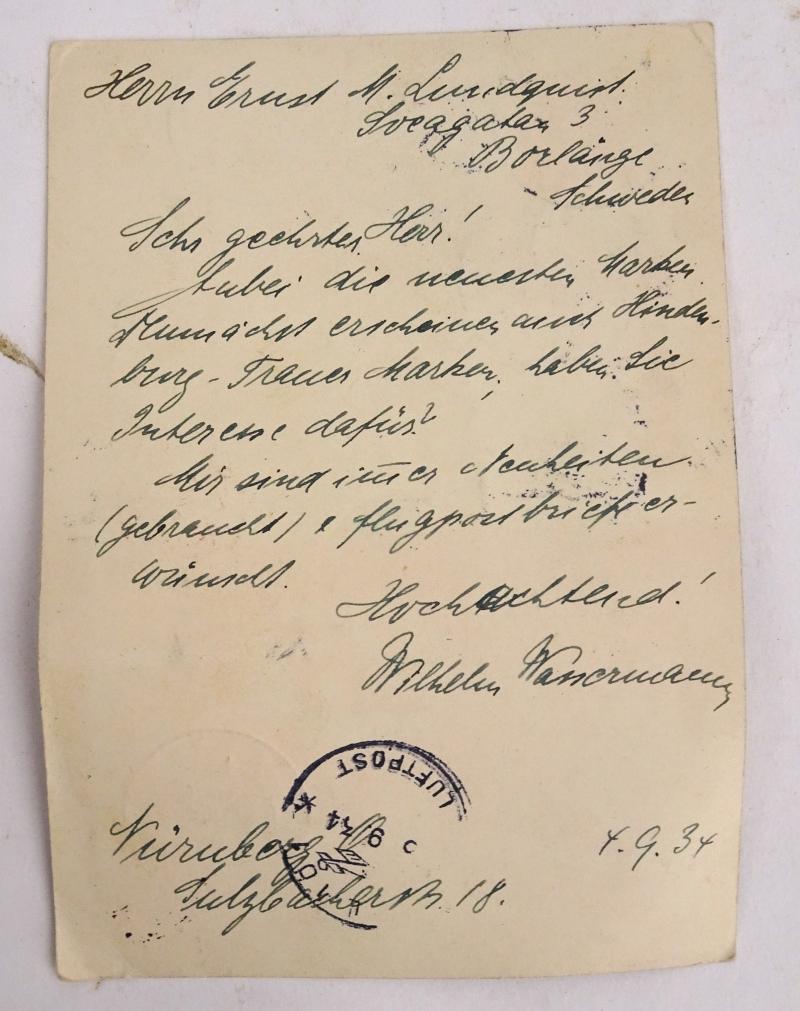 Herrn Ernst M. Lundquist.
Sveagatan 3
Borlänge
Schweden
Sehr geehrter Herr!
Anbei die neuesten Marken.
Demnächst erscheinen auch Hinden-
burg-Trauer Marken, haben Sie
Interesse dafür?
Mir sind im̅er Neuheiten
(gebraucht) & Flugpostbriefe er-
wünscht.
Hochachtend!
Wilhelm Wassermann
LUFTPOST
9 34
Nürnberg
4. 9. 34
Sulzbacherstr. 18.